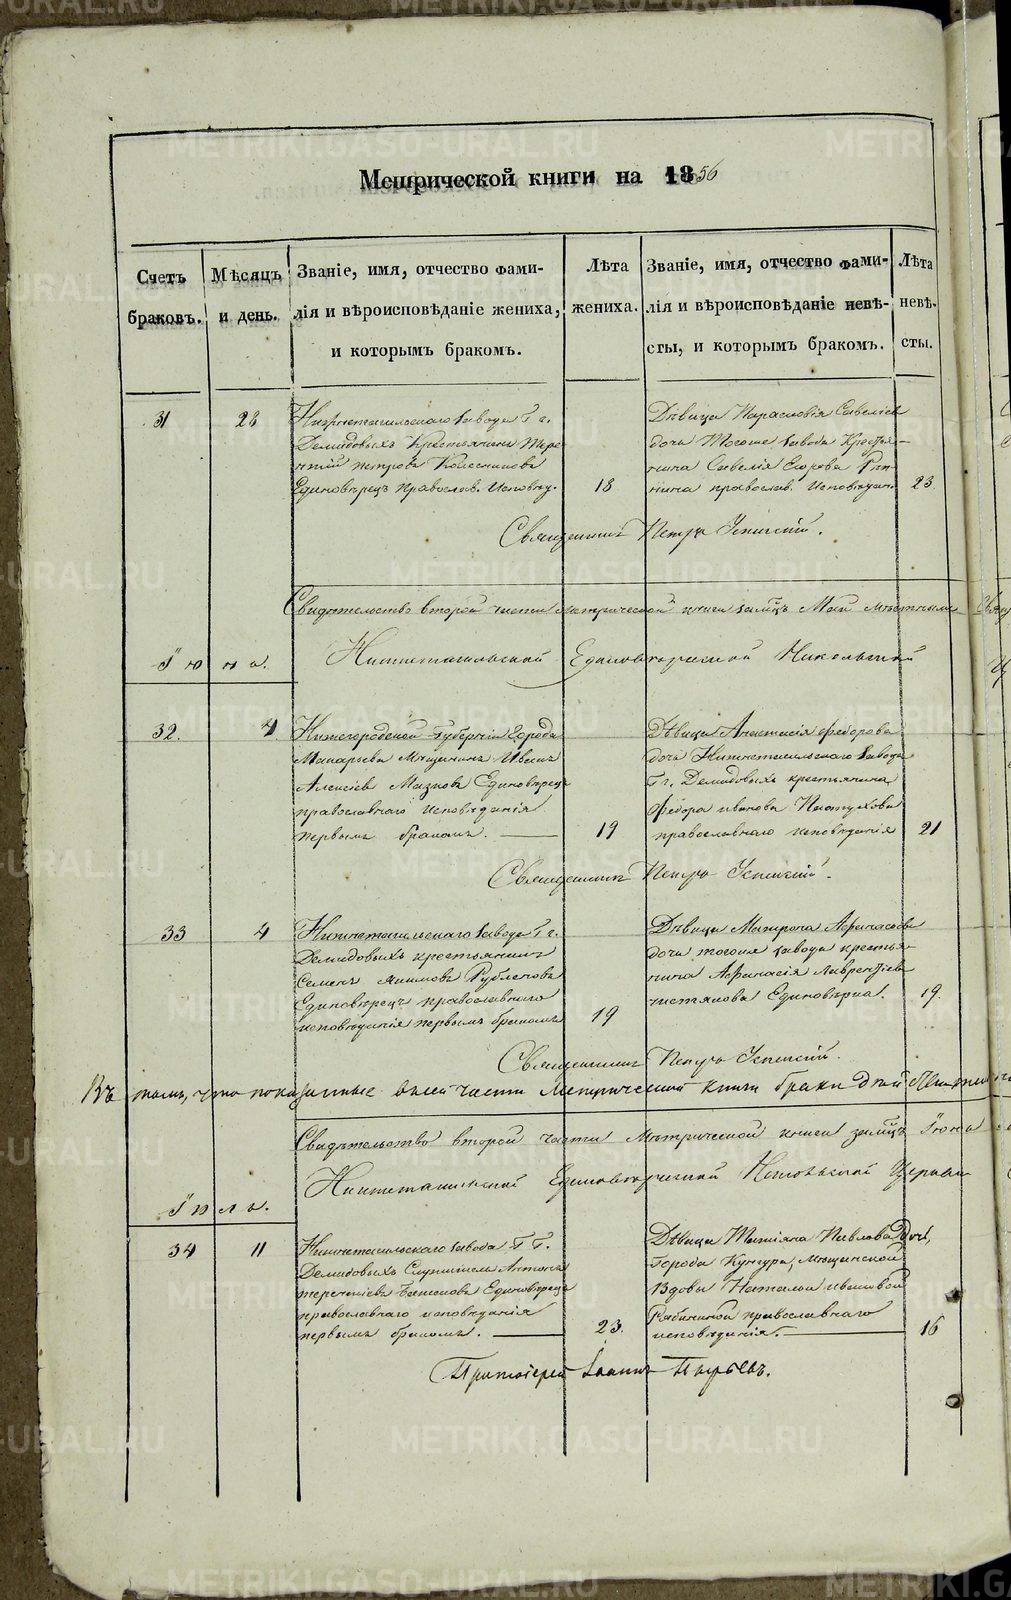 Метрической книги на 1856
Счетъ браковъ.
Мѣсяцъ и день.
Званіе, имя, отчество фами-
лія и вѣроисповѣданіе жениха,
и которымъ бракомъ.
Лѣта
жениха.
Званіе, имя, отчество фами-
лія и вѣроисповѣданіе невѣ-
сты, и которымъ бракомъ.
Лѣта
невѣ-
сты.
31
28
Нижнетагильскаго завода Гг.
Демидовыхъ Крестьянинъ Тере
нтій Петровъ Колесниковъ
Единовѣрецъ православ. Исповѣд.
18
Дѣвица Парасковія Савеліева
дочь Тогоже завода Крестья-
нина Савелія Егорова
православ. Исповѣдан.
23
Священникъ Петръ
Свидѣтельство второй части метрической книги за мцъ Май
Нижнетагильской Единовѣрческой Никольской
Іюнь.
32.
4
Нижегородской Губерніи Города
Макарьева Мѣщанинъ Иванъ
Алексіевъ Мазновъ Единовѣрецъ
православнаго Исповѣданія
первымъ бракомъ.
19
Дѣвица Анастасія Федорова
дочь Нижнетагильскаго завода
Гг. Демидовыхъ крестьянина
Федора Иванова Пастухова
православнаго исповѣданія
21
Священникъ Петръ
33
4
Нижнетагильскаго завода Гг.
Демидовыхъ крестьянинъ
Семенъ Акимовъ Рубленовъ
Единовѣрецъ православнаго
исповѣданія первымъ бракомъ
19
Дѣвица Матрона Афанасіева
дочь тогоже завода крестья-
нина Афанасія Лаврентіева
Чистякова Единовѣрка.
19.
Священникъ Петръ
Въ томъ, что показанные въ сей части Метрической книги браки
Свидѣтельство второй части Метрической книги за мцъ Іюнь
Нижнетагильской Единовѣрческой Никольской Церкви
Іюль.
34
11
Нижнетагильскаго завода Гг.
Демидовыхъ Служитель Антонъ
Терентіевъ Единовѣрецъ
православнаго исповѣданія
первымъ бракомъ.
23.
Дѣвица Татіана Павлова Дочь,
Города Кунгура, Мѣщанской
Вдовы Натальи Ивановой
Рябининой православнаго
исповѣданія.
16
Протоіерей Іоаннъ Пырьевъ.
METRIKI.GASO-URAL.RU